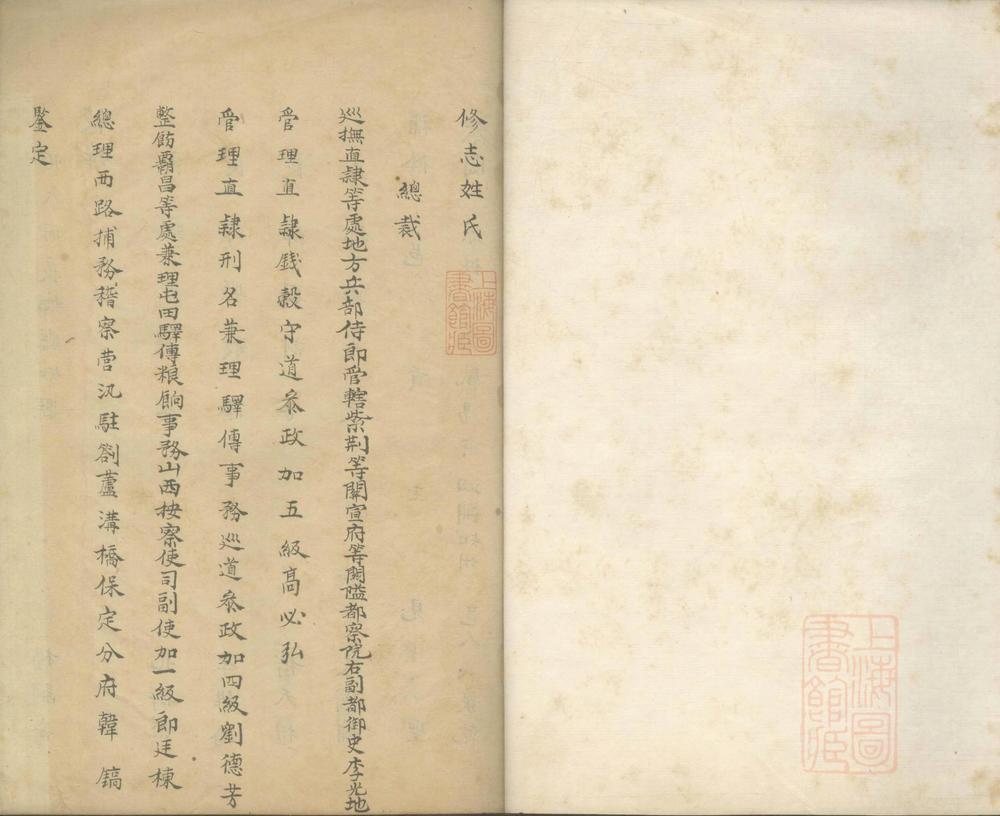 上海圖書館藏
修志姓氏
總裁
上海圖書館藏
巡撫直隸等處地方兵部侍郎管轄紫荆等關宣府等関隘都察院右副都御史李光地
管理直隸錢穀守道叅政加五級高必弘
管理直隸刑名兼理驛傳事務巡道叅政加四級劉德芳
整飭霸昌等處兼理屯田驛傳粮餉事務山西按察使司副使加一級郎廷棟
總理西路捕務稽察营汛駐劄蘆溝橋保定分府韓鎬
鑒定